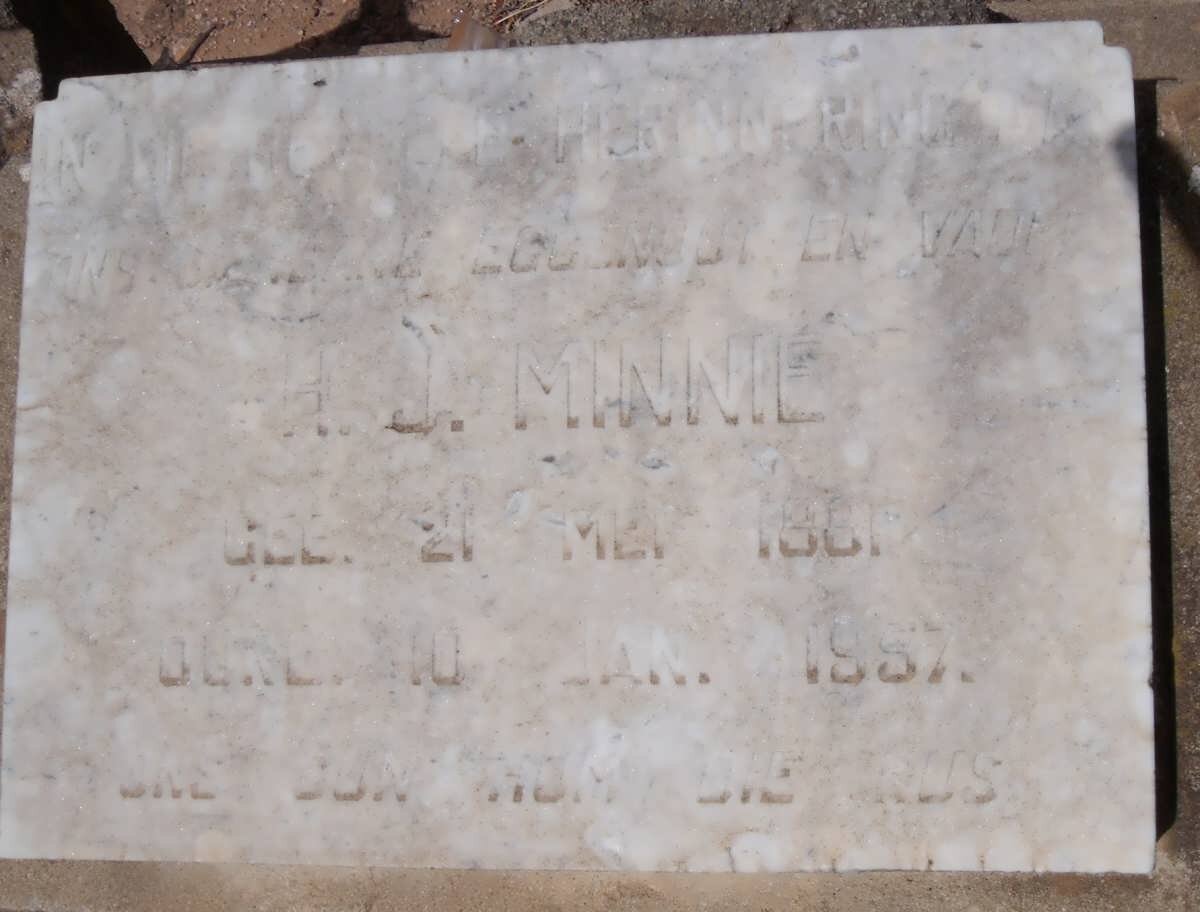 IN HERINNERING
ONS EGGENOOT EN VADER
H. J. MINNIE
GEB. 21 MEI 1881
OORL. 10 JAN. 1957.
ONS GUN HOM DIE RUS